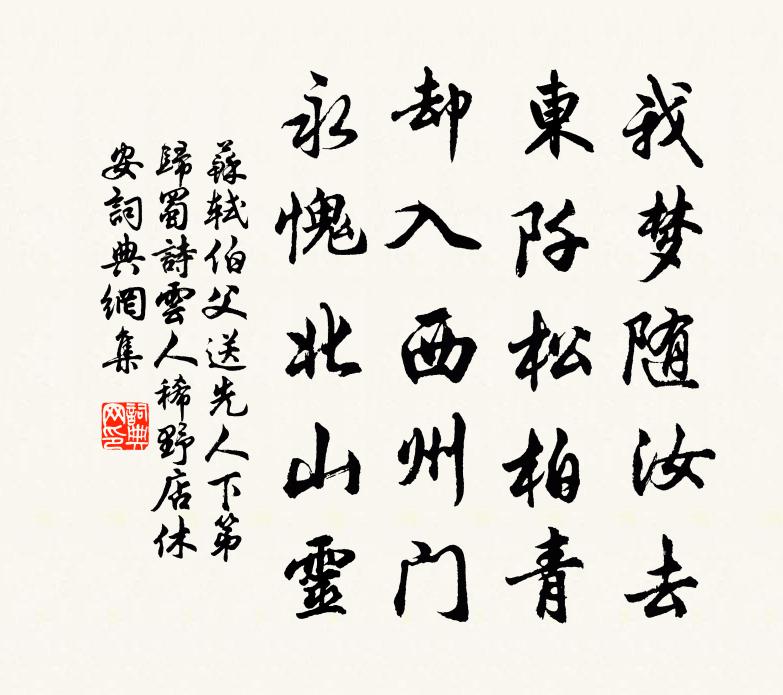 我梦随汝去
東阡松柏青
却入西州门
永愧北山靈
蘇軾伯父送先人下第
歸蜀詩雲人稀野店休
安詞典網集
詞典网印